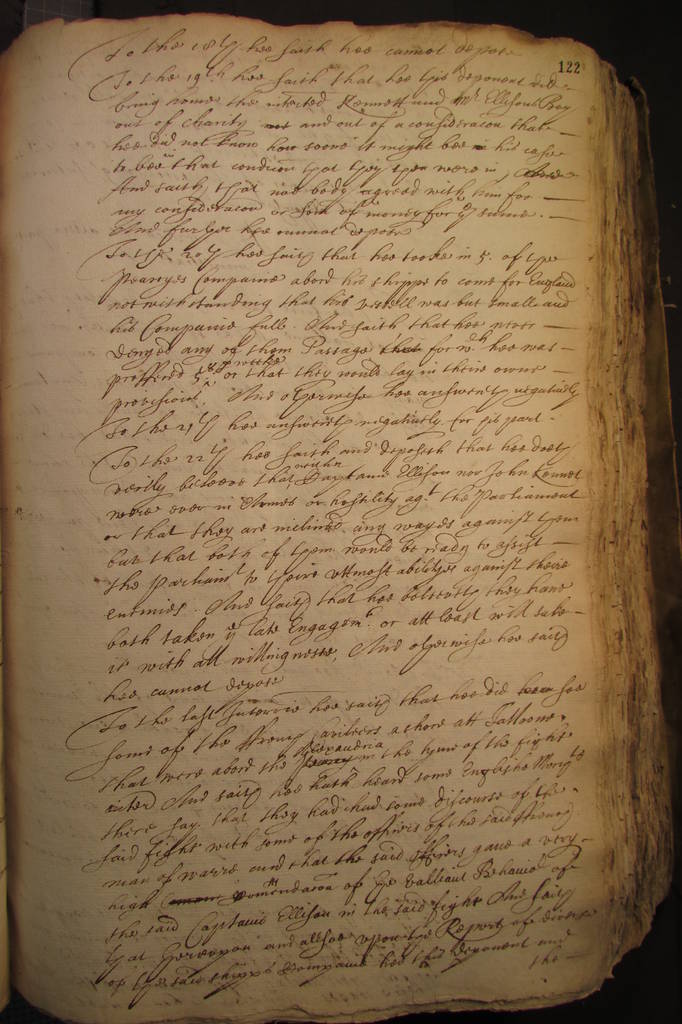 To the 18th hee saith hee cannot depose
122
To the 19th hee saith that hee this deponent did
bring home the interred Kennett and Mr Ellisons Boy
out of charity and out of a consideracon that
hee did not know how soone it might bee his case
to bee in that condicon that they then were in
And saith that noe body agreed with him for
any consideracon or some of money for ye same.
And further hee cannot depose
To the 20th hee saith that hee tooke in 5. of the
Pearyes Companie abord his shippe to come for England
notwithstanding that his vessell was but small and
his Companie full. And saith that hee never
denyed any of them Passage for wch hee was
proffered or that they would lay in theire owne
provisions. And otherwise hee answereth negatively
To the 21th hee answereth negatively for his part.
To the 22th hee saith and deposeth that hee doeth
verily beleeve that Captaine Ellison nor John Kennet
were ever in Armes or hostility agt the Parliament
or that they are inclined any wayes against them
but that both of them would be ready to assist
the Parliamt to theire uttmost abilityes against theire
enemies. And saith that hee beleeveth they have
both taken ye late Engagemt. or att least will take
it with all willingnesse, And otherwise hee saith
hee cannot depose
To the last Interrie hee saith that hee did see
some of the ffrench ashore att
that were abord the in the tyme of the fight
And saith hee hath heard some English Merchts
there say, that they had had some discourse of the
said fight with some of the officers of the said ffrench
man of warre and that the said officers gave a very
high Comendacon of the valliant Behaviour of
the said Captaine Ellison in the said fight And saith
that thereupon and allsoe upon the Report of diverse
of the said shipps Companie hee this deponent
the